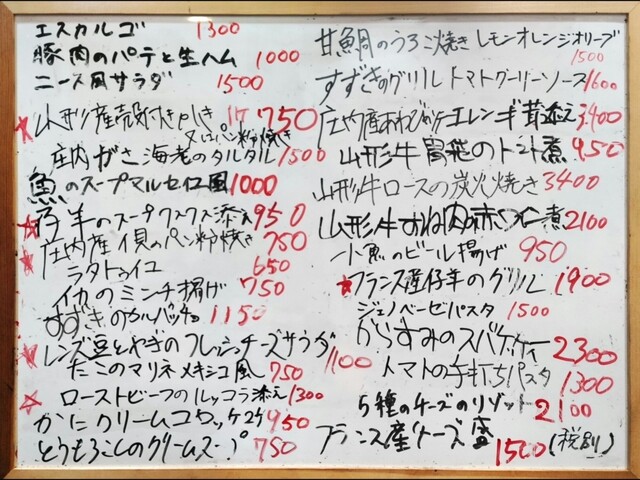 エスカルゴ 1300
豚肉のパテと生ハム 1000
ニース風サラダ 1500
山形産殻付き 750
又はパン粉焼き
庄内がさ海老のタルタル 1500
魚のスープマルセイユ風 1000
仔羊のスープクスクス添え 950
庄内産 貝のパン粉焼き 750
ラタトゥイユ 650
イカのミンチ揚げ 750
すずきのカルパッチョ 1150
レンズ豆とやぎのフレッシュチーズサラダ 1100
たこのマリネ メキシコ風 750
ローストビーフのルッコラ添え 1300
かにクリームコロッケ2ケ 950
とうもろこしのクリームスープ 750
甘鯛のうろこ焼き レモンオレンジオリーブ 1500
すずきのグリル トマトグリーンソース 1600
庄内産あわび エリンギ茸添え 3400
山形牛胃袋のトマト煮 950
山形牛ロースの炭火焼き 3400
山形牛すね肉の赤ワイン煮 2100
小魚のビール揚げ 950
フランス産仔羊のグリル 1900
ジェノベーゼパスタ 1500
からすみのスパゲッティ 2300
トマトの手打ちパスタ 1300
5種のチーズのリゾット 2100
フランス産チーズ盛 1500 (税別)